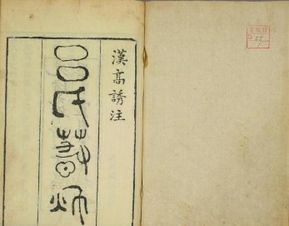 漢高誘注
呂氏春秋